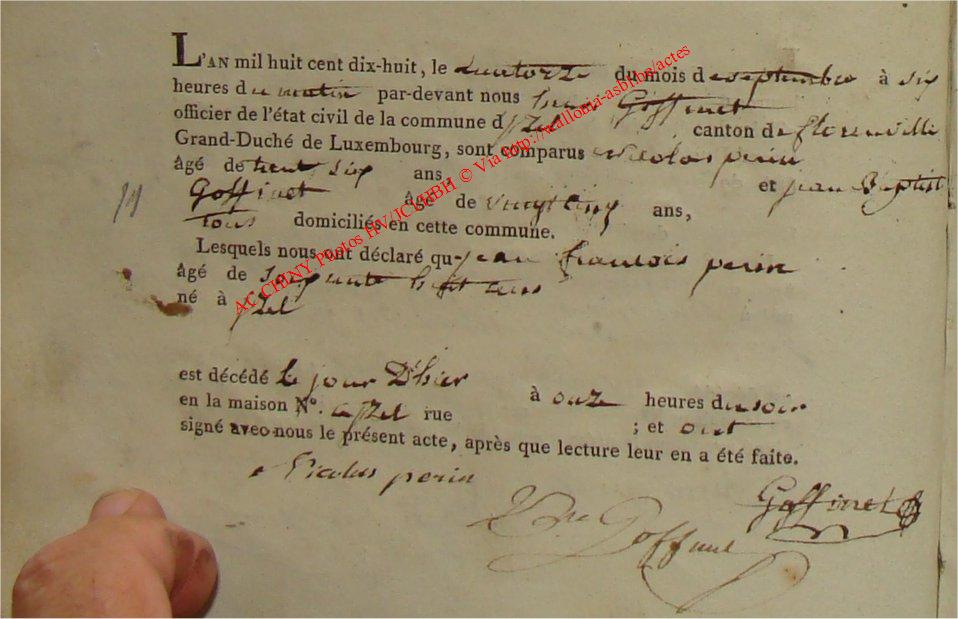 L'AN mil huit cent dix-huit, le quatorze du mois de septembre à six
heures du matin par-devant nous Goffinet
officier de l'état civil de la commune d'jzel canton de florenville
Grand-Duché de Luxembourg, sont comparus Nicolas perin
âgé de trent six ans, et jean Baptist
Goffinet âgé de vingt cinq ans,
tous domiciliés en cette commune.
Lesquels nous ont déclaré que jean francois perin
âgé de soixante huit ans
né à jzel
est décédé le jour D'hier à onze heures du soir
en la maison N°. a jzel rue ; et ont
signé avec nous le présent acte, après que lecture leur en a été faite.
Nicolas perin
Goffinet
Goffinet
19
AC CHINY Photos HV/JC HBH © Via http://wallonia-asbl.be/actes